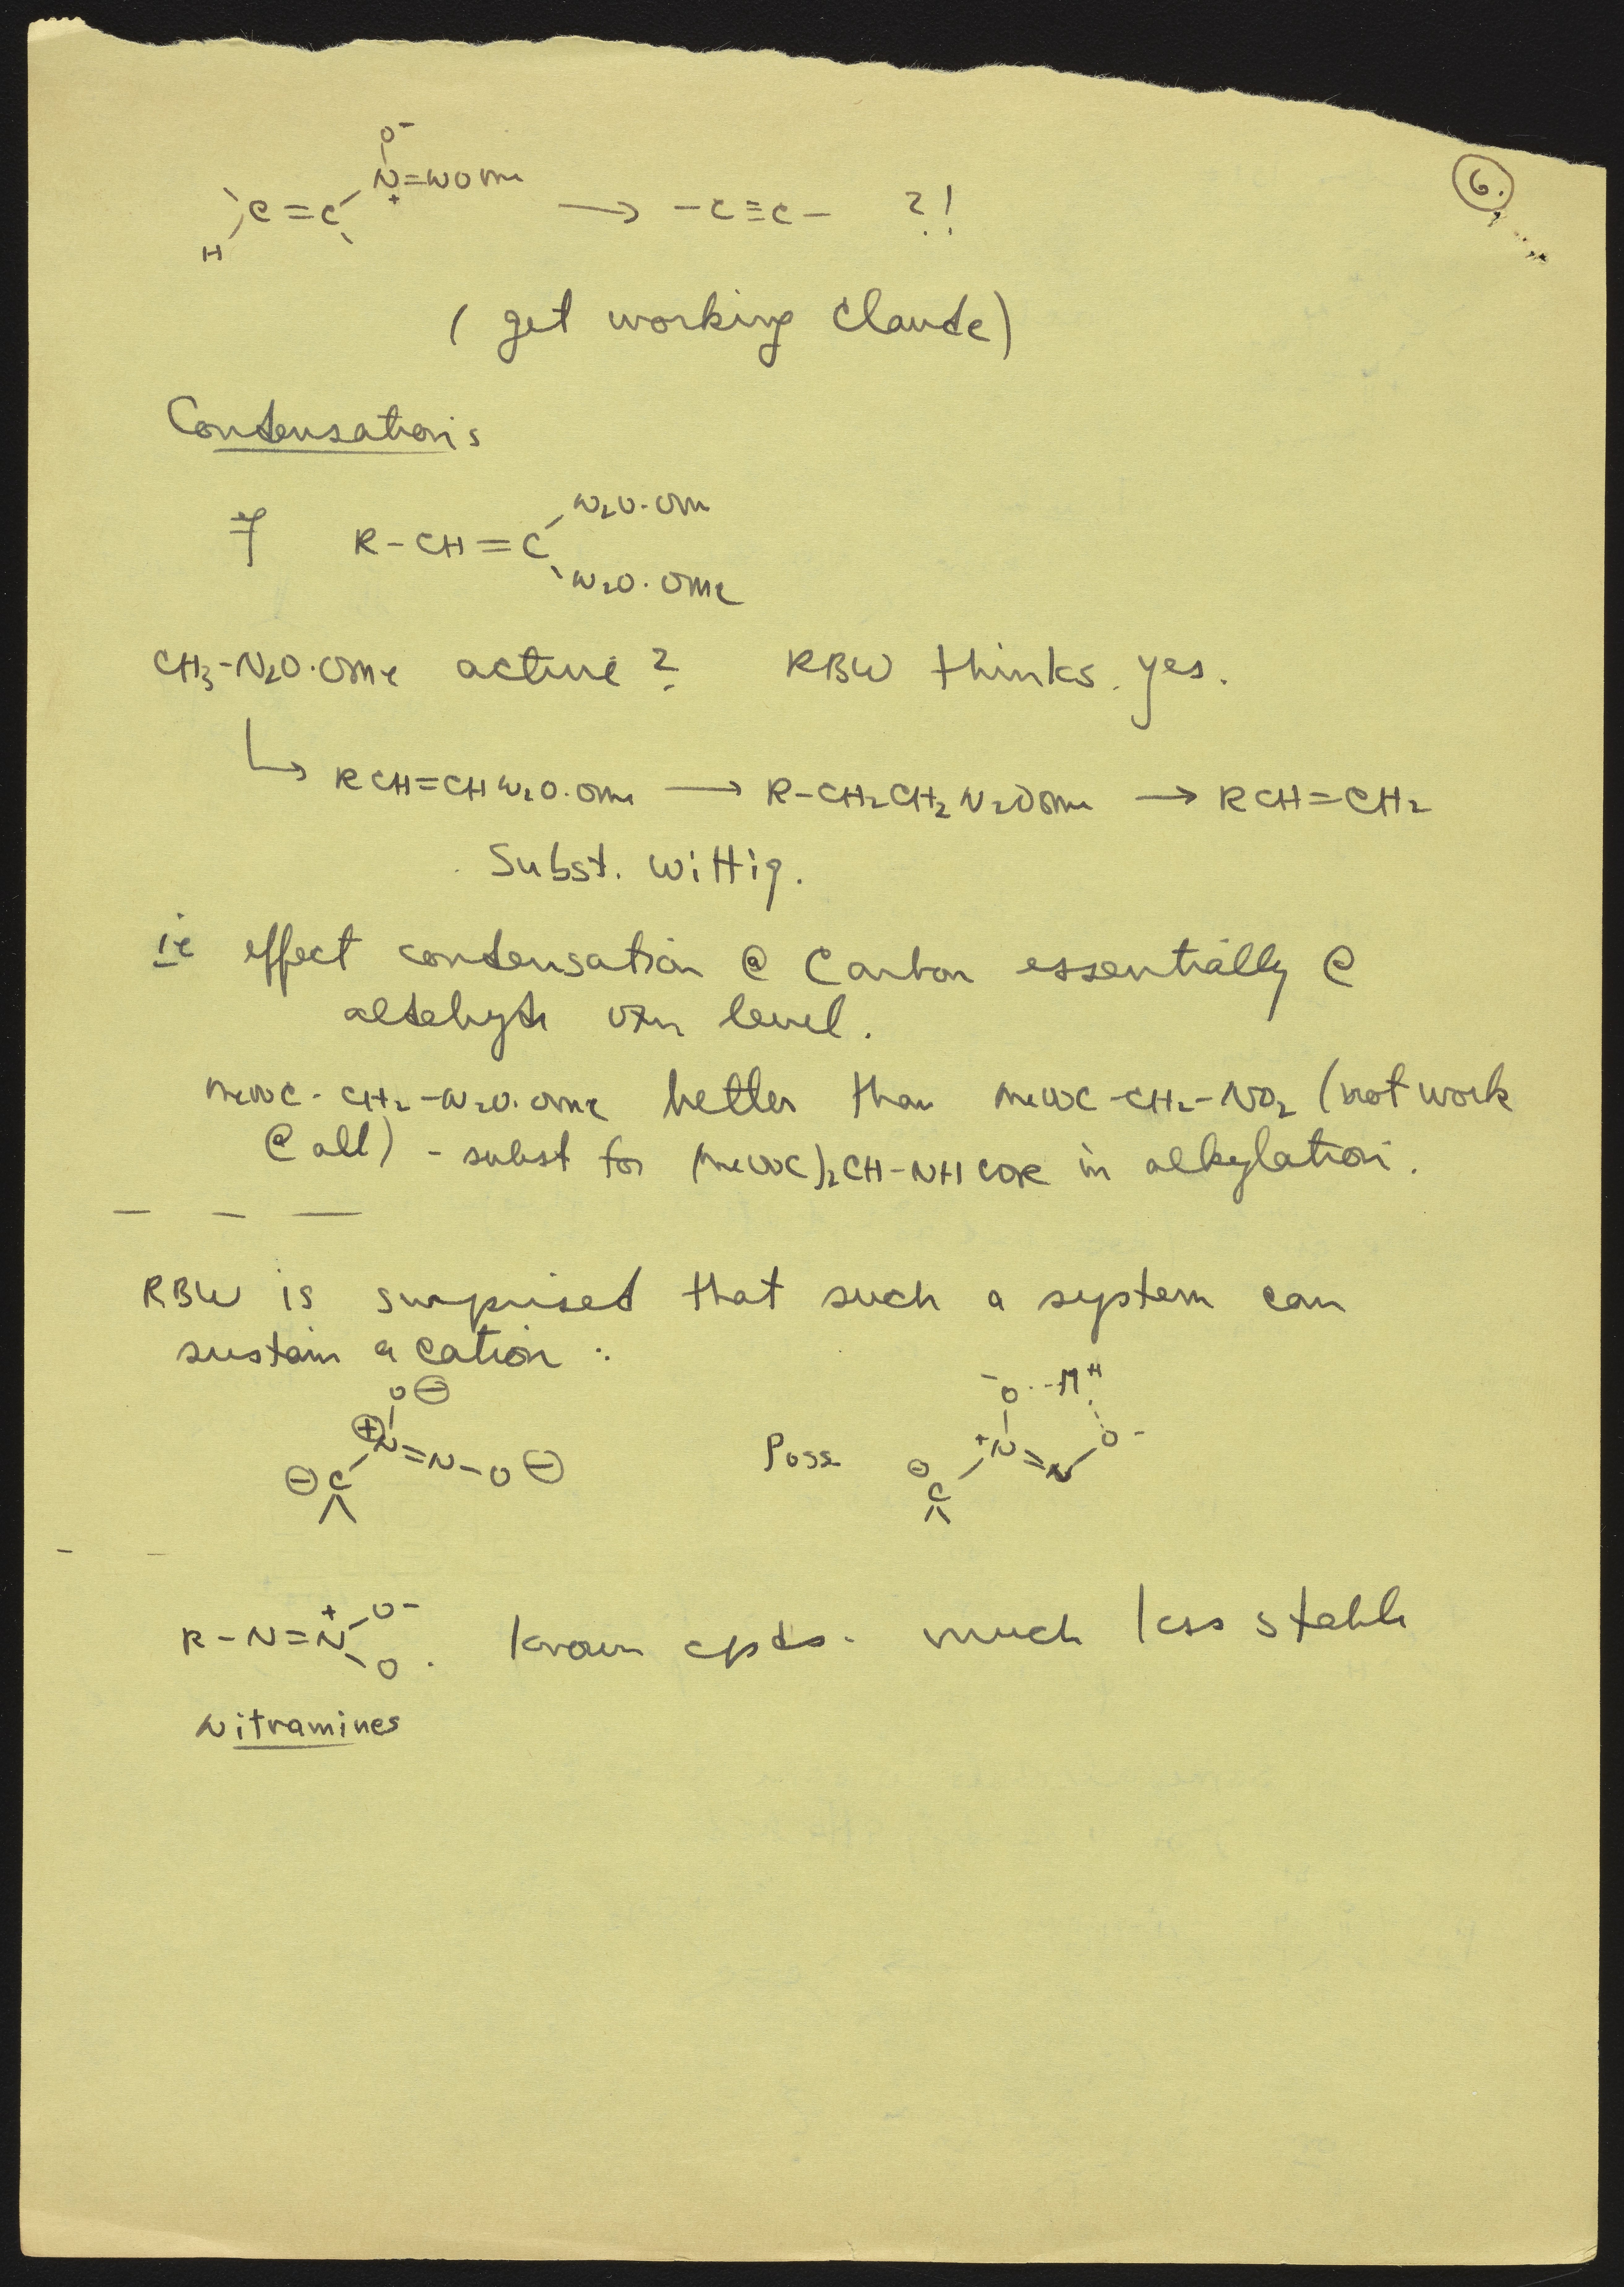 6.
O⁻
H C=C N⁺=NOMe → -C≡C- ?!
(get working Claude)
Condensations
R-CH=C
N₂O·OMe
N₂O·OMe
CH₃-N₂O·OMe active? RBW thinks yes.
↳ RCH=CHN₂O·OMe → R-CH₂CH₂N₂OOMe → RCH=CH₂
Subst. Wittig.
ie effect condensation @ carbon essentially @
aldehyde oxn level.
MeOOC-CH₂-N₂O·OMe better than MeOOC-CH₂-NO₂ (not work
@ all) - subst for (MeOOC)₂CH-NHCOR in alkylation.
RBW is surprised that such a system can
sustain a cation:
O⊖
⊕N=N-O⊖
⊖C
Poss
⁻O---M⁺
⁺N=N O⁻
⊖C
R-N=N⁺ O⁻
O. Known cpds. much less stable
Nitramines